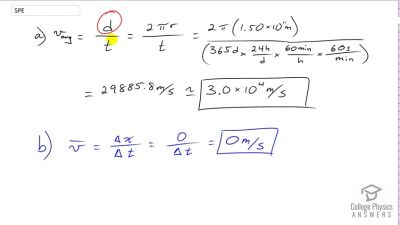 5PE
a) v_avg = d/t = 2πr/t = 2π(1.50×10¹¹m)/(365d × 24h/d × 60min/h × 60s/min)
= 29885.8 m/s ≃ 3.0×10⁴ m/s
b) v̄ = Δx/Δt = 0/Δt = 0 m/s
College Physics
ANSWERS